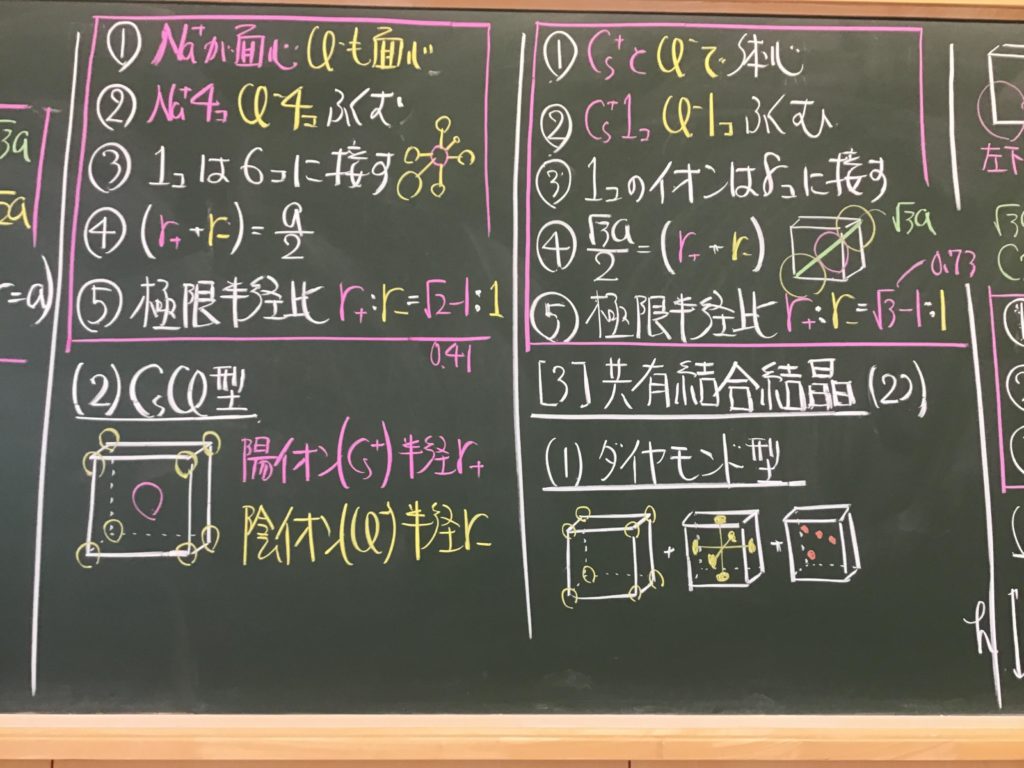 √3a
√2a
r=a)
① Na⁺が面心 Cl⁻も面心
② Na⁺4コ Cl⁻4コ ふくむ
③ 1コは6コに接す
④ (r₊+r₋)=a/2
⑤ 極限半径比 r₊:r₋=√2-1:1
0.41
(2) CsCl型
陽イオン(Cs⁺)半径r₊
陰イオン(Cl⁻)半径r₋
① Cs⁺とCl⁻で体心
② Cs⁺1コ Cl⁻1コ ふくむ
③ 1コのイオンは8コに接す
④ √3a/2=(r₊+r₋)
√3a
0.73
⑤ 極限半径比 r₊:r₋=√3-1:1
[3] 共有結合結晶 (20)
(1) ダイヤモンド型
+ +
左下
√3a
h